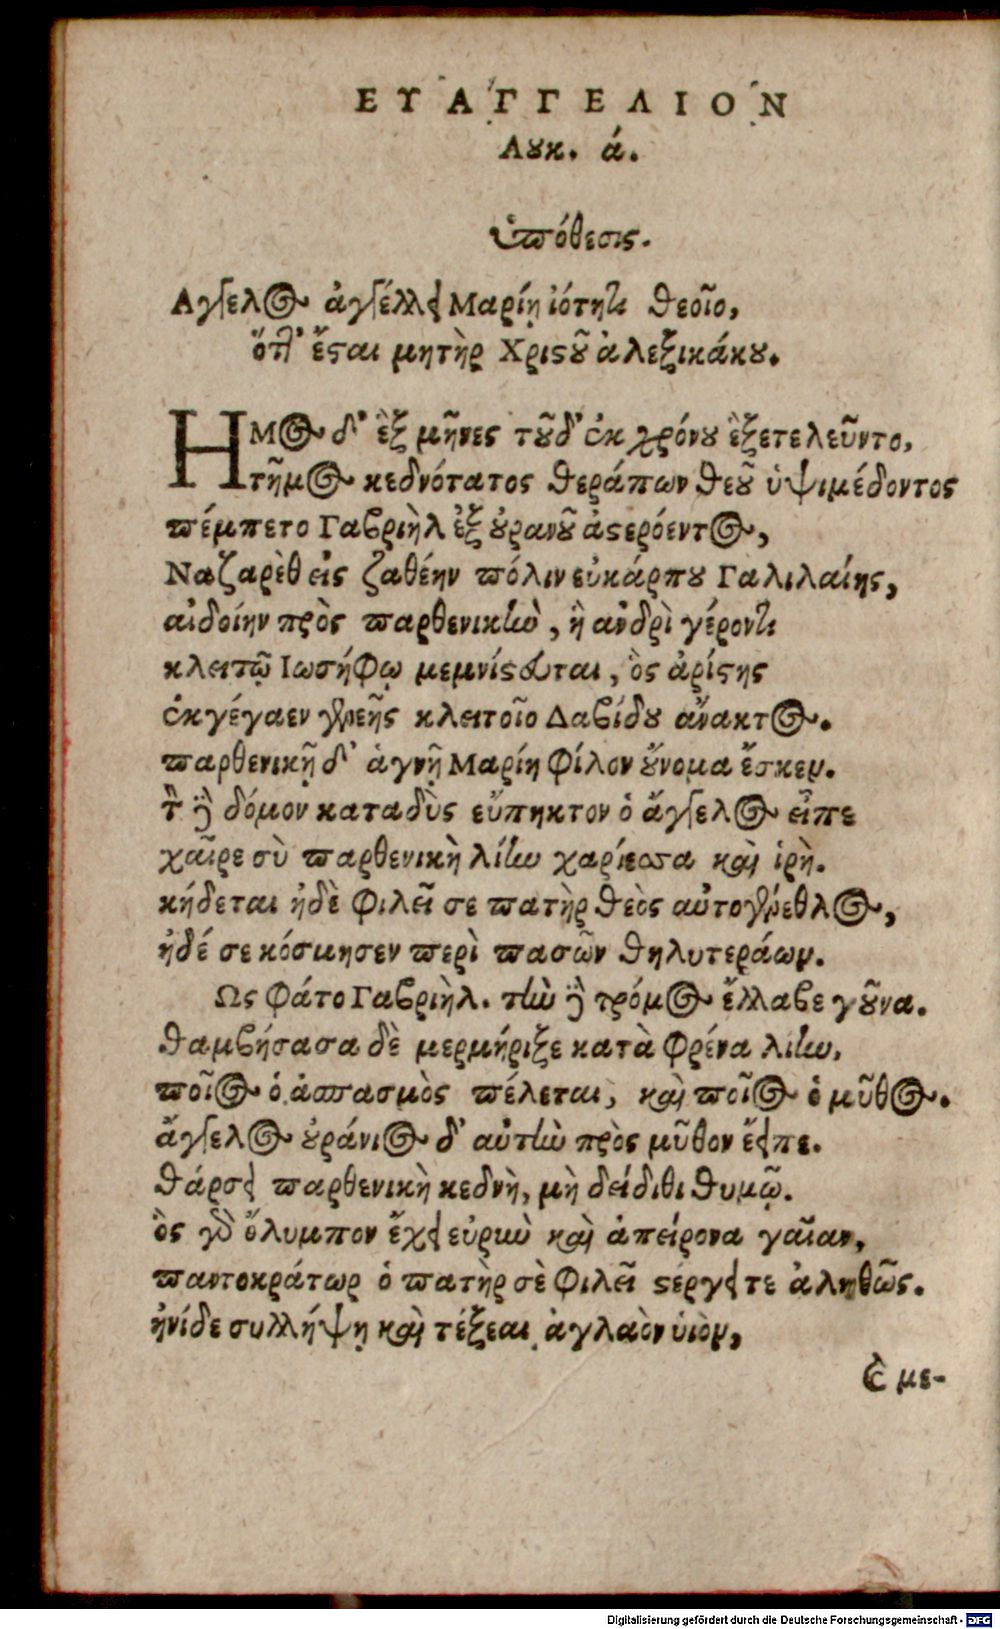 ΕΥΑΓΓΕΛΙΟΝ
Λουκ. ά.
ὑπόθεσις.
Αγγελος ἀγγέλλει Μαρίῃ ἰότητι θεοῖο,
ὅττ' ἔσται μητὴρ Χριστοῦ ἀλεξικάκου.
ΗΜος δ' ἓξ μῆνες τοῦδ' ἐκ χρόνου ἐξετελεῦντο,
τῆμος κεδνότατος θεράπων θεοῦ ὑψιμέδοντος
πέμπετο Γαβριὴλ ἐξ οὐρανοῦ ἀστερόεντος,
Ναζαρὲθ εἰς ζαθέην πόλιν εὐκάρπου Γαλιλαίης,
αἰδοίην πρὸς παρθενικὴν, ἣ ἀνδρὶ γέροντι
κλειτῷ Ιωσήφῳ μεμνίστευται, ὃς ἀρίστης
ἐκγέγαεν γενεῆς κλειτοῖο Δαβίδου ἄνακτος.
παρθενικῇ δ' ἁγνῇ Μαρίη φίλον οὔνομα ἔσκεν.
τῆς δὲ δόμον καταδὺς εὔπηκτον ὁ ἄγγελος εἶπε
χαῖρε σὺ παρθενικὴ λίην χαρίεσσα καὶ ἱρὴ.
κήδεται ἠδὲ φιλεῖ σε πατὴρ θεὸς αὐτογένεθλος,
ἠδέ σε κόσμησεν περὶ πασῶν θηλυτεράων.
Ως φάτο Γαβριὴλ. τὴν δὲ τρόμος ἔλλαβε γοῦνα.
θαμβήσασα δὲ μερμήριξε κατὰ φρένα λίην,
ποῖος ὁ ἀσπασμὸς πέλεται, καὶ ποῖος ὁ μῦθος.
ἄγγελος οὐράνιος δ' αὐτὴν πρὸς μῦθον ἔειπε.
θάρσει παρθενικὴ κεδνὴ, μὴ δείδιθι θυμῷ.
ὃς γὰρ ὄλυμπον ἔχει εὐρὺν καὶ ἀπείρονα γαῖαν,
παντοκράτωρ ὁ πατὴρ σὲ φιλεῖ στέργει τε ἀληθῶς.
ἠνίδε συλλήψῃ καὶ τέξεαι ἀγλαὸν υἱὸν,
ἐ με-
Digitalisierung gefördert durch die Deutsche Forschungsgemeinschaft - DFG